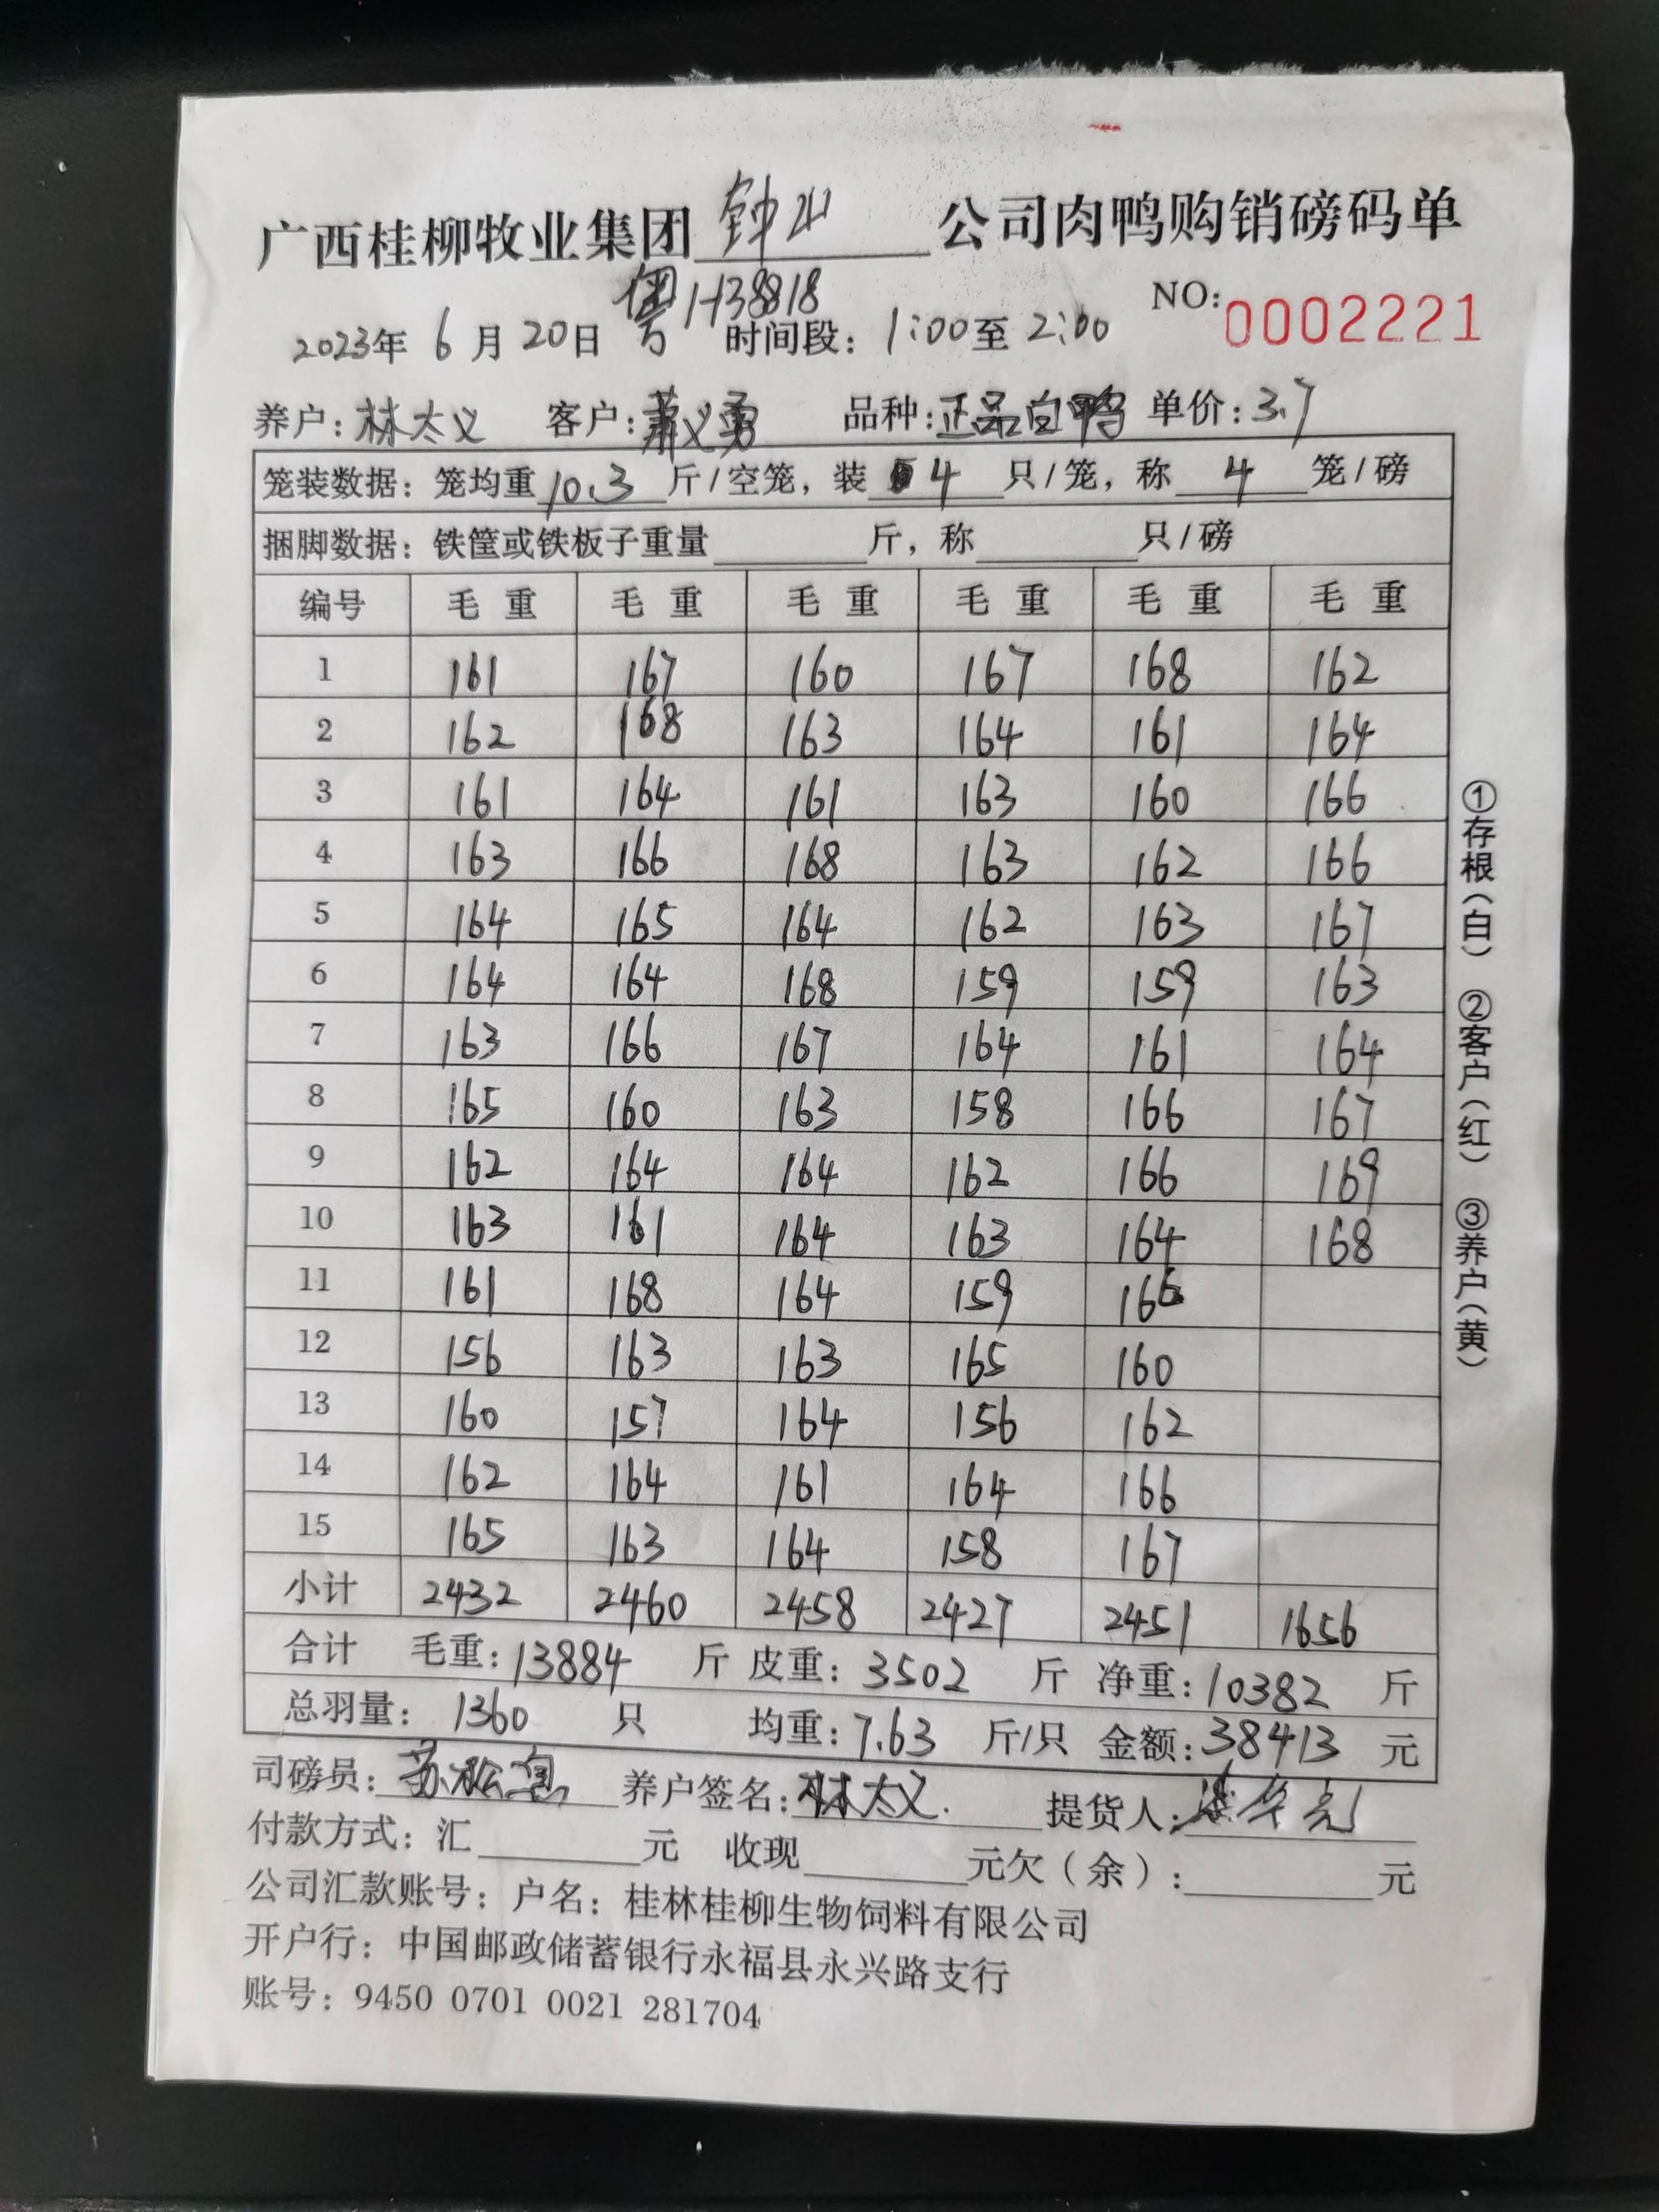 广西桂柳牧业集团 钟山 公司肉鸭购销磅码单
粤H38818
NO: 0002221
2023年 6 月 20 日 时间段: 1:00 至 2:00
养户: 林太义 客户: 萧义勇 品种: 正品白鸭 单价: 3.7
笼装数据: 笼均重 10.3 斤/空笼, 装 4 只/笼, 称 4 笼/磅
捆脚数据: 铁筐或铁板子重量 斤, 称 只/磅
编号 毛重 毛重 毛重 毛重 毛重 毛重
1 161 167 160 167 168 162
2 162 168 163 164 161 164
3 161 164 161 163 160 166
4 163 166 168 163 162 166
5 164 165 164 162 163 167
6 164 164 168 159 159 163
7 163 166 167 164 161 164
8 165 160 163 158 166 167
9 162 164 164 162 166 169
10 163 161 164 163 164 168
11 161 168 164 159 166
12 156 163 163 165 160
13 160 157 164 156 162
14 162 164 161 164 166
15 165 163 164 158 167
小计 2432 2460 2458 2427 2451 1656
合计 毛重: 13884 斤 皮重: 3502 斤 净重: 10382 斤
总羽量: 1360 只 均重: 7.63 斤/只 金额: 38413 元
司磅员: 养户签名: 林太义. 提货人:
付款方式: 汇 元 收现 元欠(余): 元
公司汇款账号: 户名: 桂林桂柳生物饲料有限公司
开户行: 中国邮政储蓄银行永福县永兴路支行
账号: 9450 0701 0021 281704
①存根(白) ②客户(红) ③养户(黄)